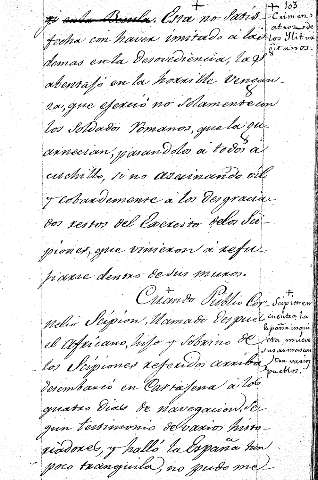 en la Betula. Esta no satis
fecha con haver imitado a las
demas en la desovediencia, las
abentajó en la horrible vengan
za, que exerció no solamente con
los soldados romanos, que la gu
arnecian, pasandolos a todos á
cuchillo, si no asesinando vil
y cobardemente a los desgracia
dos restos del Exercito de los Sci
piones, que vinieron á refu
giarse dentro de sus muros.
Cuando Publio Cor
nelio Scipion, llamado despues
el Africano, hijo y sobrino de
los Scipiones referidos arriba
desembarcó en Cartagena á los
quatro dias de navegacion, se
gun testimonio de varios histo
riadores, y halló la España
poco tranquila, no pudo me
103
Crimen
atroz de
los Ylitur
gitanos.
Scipion en
cuentra la
España inqui
eta
pueblos.